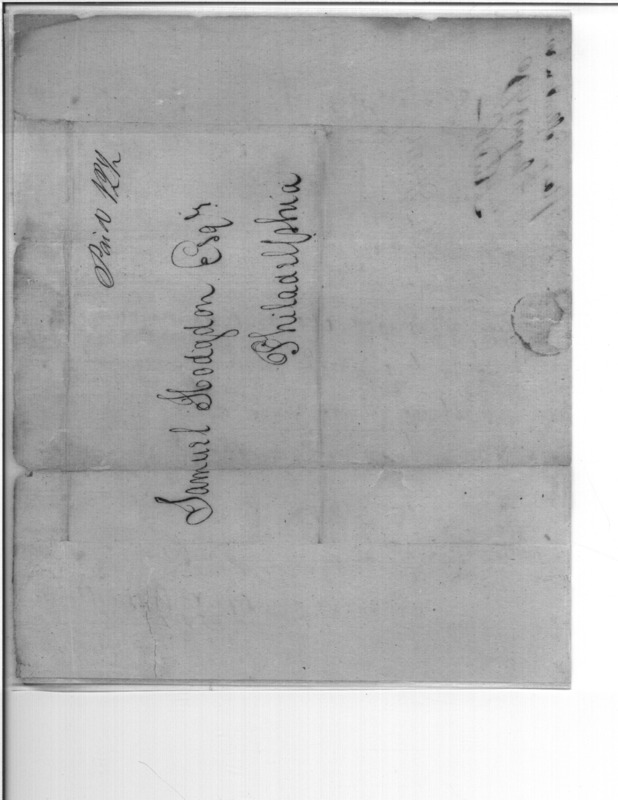 Paid 12½
Samuel Hodgdon Esqr.
Philadelphia